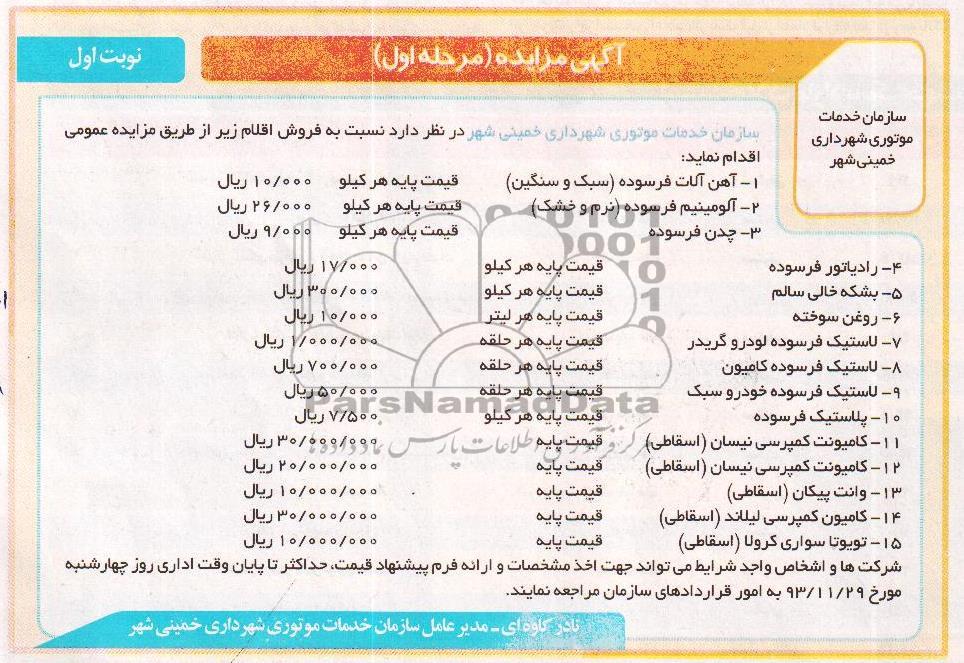 نوبت اول
آگهی مزایده (مرحله اول)
سازمان خدمات
موتوری شهرداری
خمینی‌شهر
سازمان خدمات موتوری شهرداری خمینی شهر در نظر دارد نسبت به فروش اقلام زیر از طریق مزایده عمومی
اقدام نماید:
۱- آهن آلات فرسوده (سبک و سنگین) قیمت پایه هر کیلو ۱۰/۰۰۰ ریال
۲- آلومینیم فرسوده (نرم و خشک) قیمت پایه هر کیلو ۲۶/۰۰۰ ریال
۳- چدن فرسوده قیمت پایه هر کیلو ۹/۰۰۰ ریال
۴- رادیاتور فرسوده قیمت پایه هر کیلو ۱۷/۰۰۰ ریال
۵- بشکه خالی سالم قیمت پایه هر کیلو ۳۰۰/۰۰۰ ریال
۶- روغن سوخته قیمت پایه هر لیتر ۱۰/۰۰۰ ریال
۷- لاستیک فرسوده لودر و گریدر قیمت پایه هر حلقه ۱/۰۰۰/۰۰۰ ریال
۸- لاستیک فرسوده کامیون قیمت پایه هر حلقه ۷۰۰/۰۰۰ ریال
۹- لاستیک فرسوده خودرو سبک قیمت پایه هر حلقه ۵۰/۰۰۰ ریال
۱۰- پلاستیک فرسوده قیمت پایه هر کیلو ۷/۵۰۰ ریال
ParsNamadData
مرکز فرآوری اطلاعات پارس نماد داده‌ها
۱۱- کامیونت کمپرسی نیسان (اسقاطی) قیمت پایه ۳۰/۰۰۰/۰۰۰ ریال
۱۲- کامیونت کمپرسی نیسان (اسقاطی) قیمت پایه ۲۰/۰۰۰/۰۰۰ ریال
۱۳- وانت پیکان (اسقاطی) قیمت پایه ۱۰/۰۰۰/۰۰۰ ریال
۱۴- کامیون کمپرسی لیلاند (اسقاطی) قیمت پایه ۳۰/۰۰۰/۰۰۰ ریال
۱۵- تویوتا سواری کرولا (اسقاطی) قیمت پایه ۱۰/۰۰۰/۰۰۰ ریال
شرکت ها و اشخاص واجد شرایط می تواند جهت اخذ مشخصات و ارائه فرم پیشنهاد قیمت، حداکثر تا پایان وقت اداری روز چهارشنبه
مورخ ۹۳/۱۱/۲۹ به امور قراردادهای سازمان مراجعه نمایند.
نادر کاوه ای - مدیر عامل سازمان خدمات موتوری شهرداری خمینی شهر